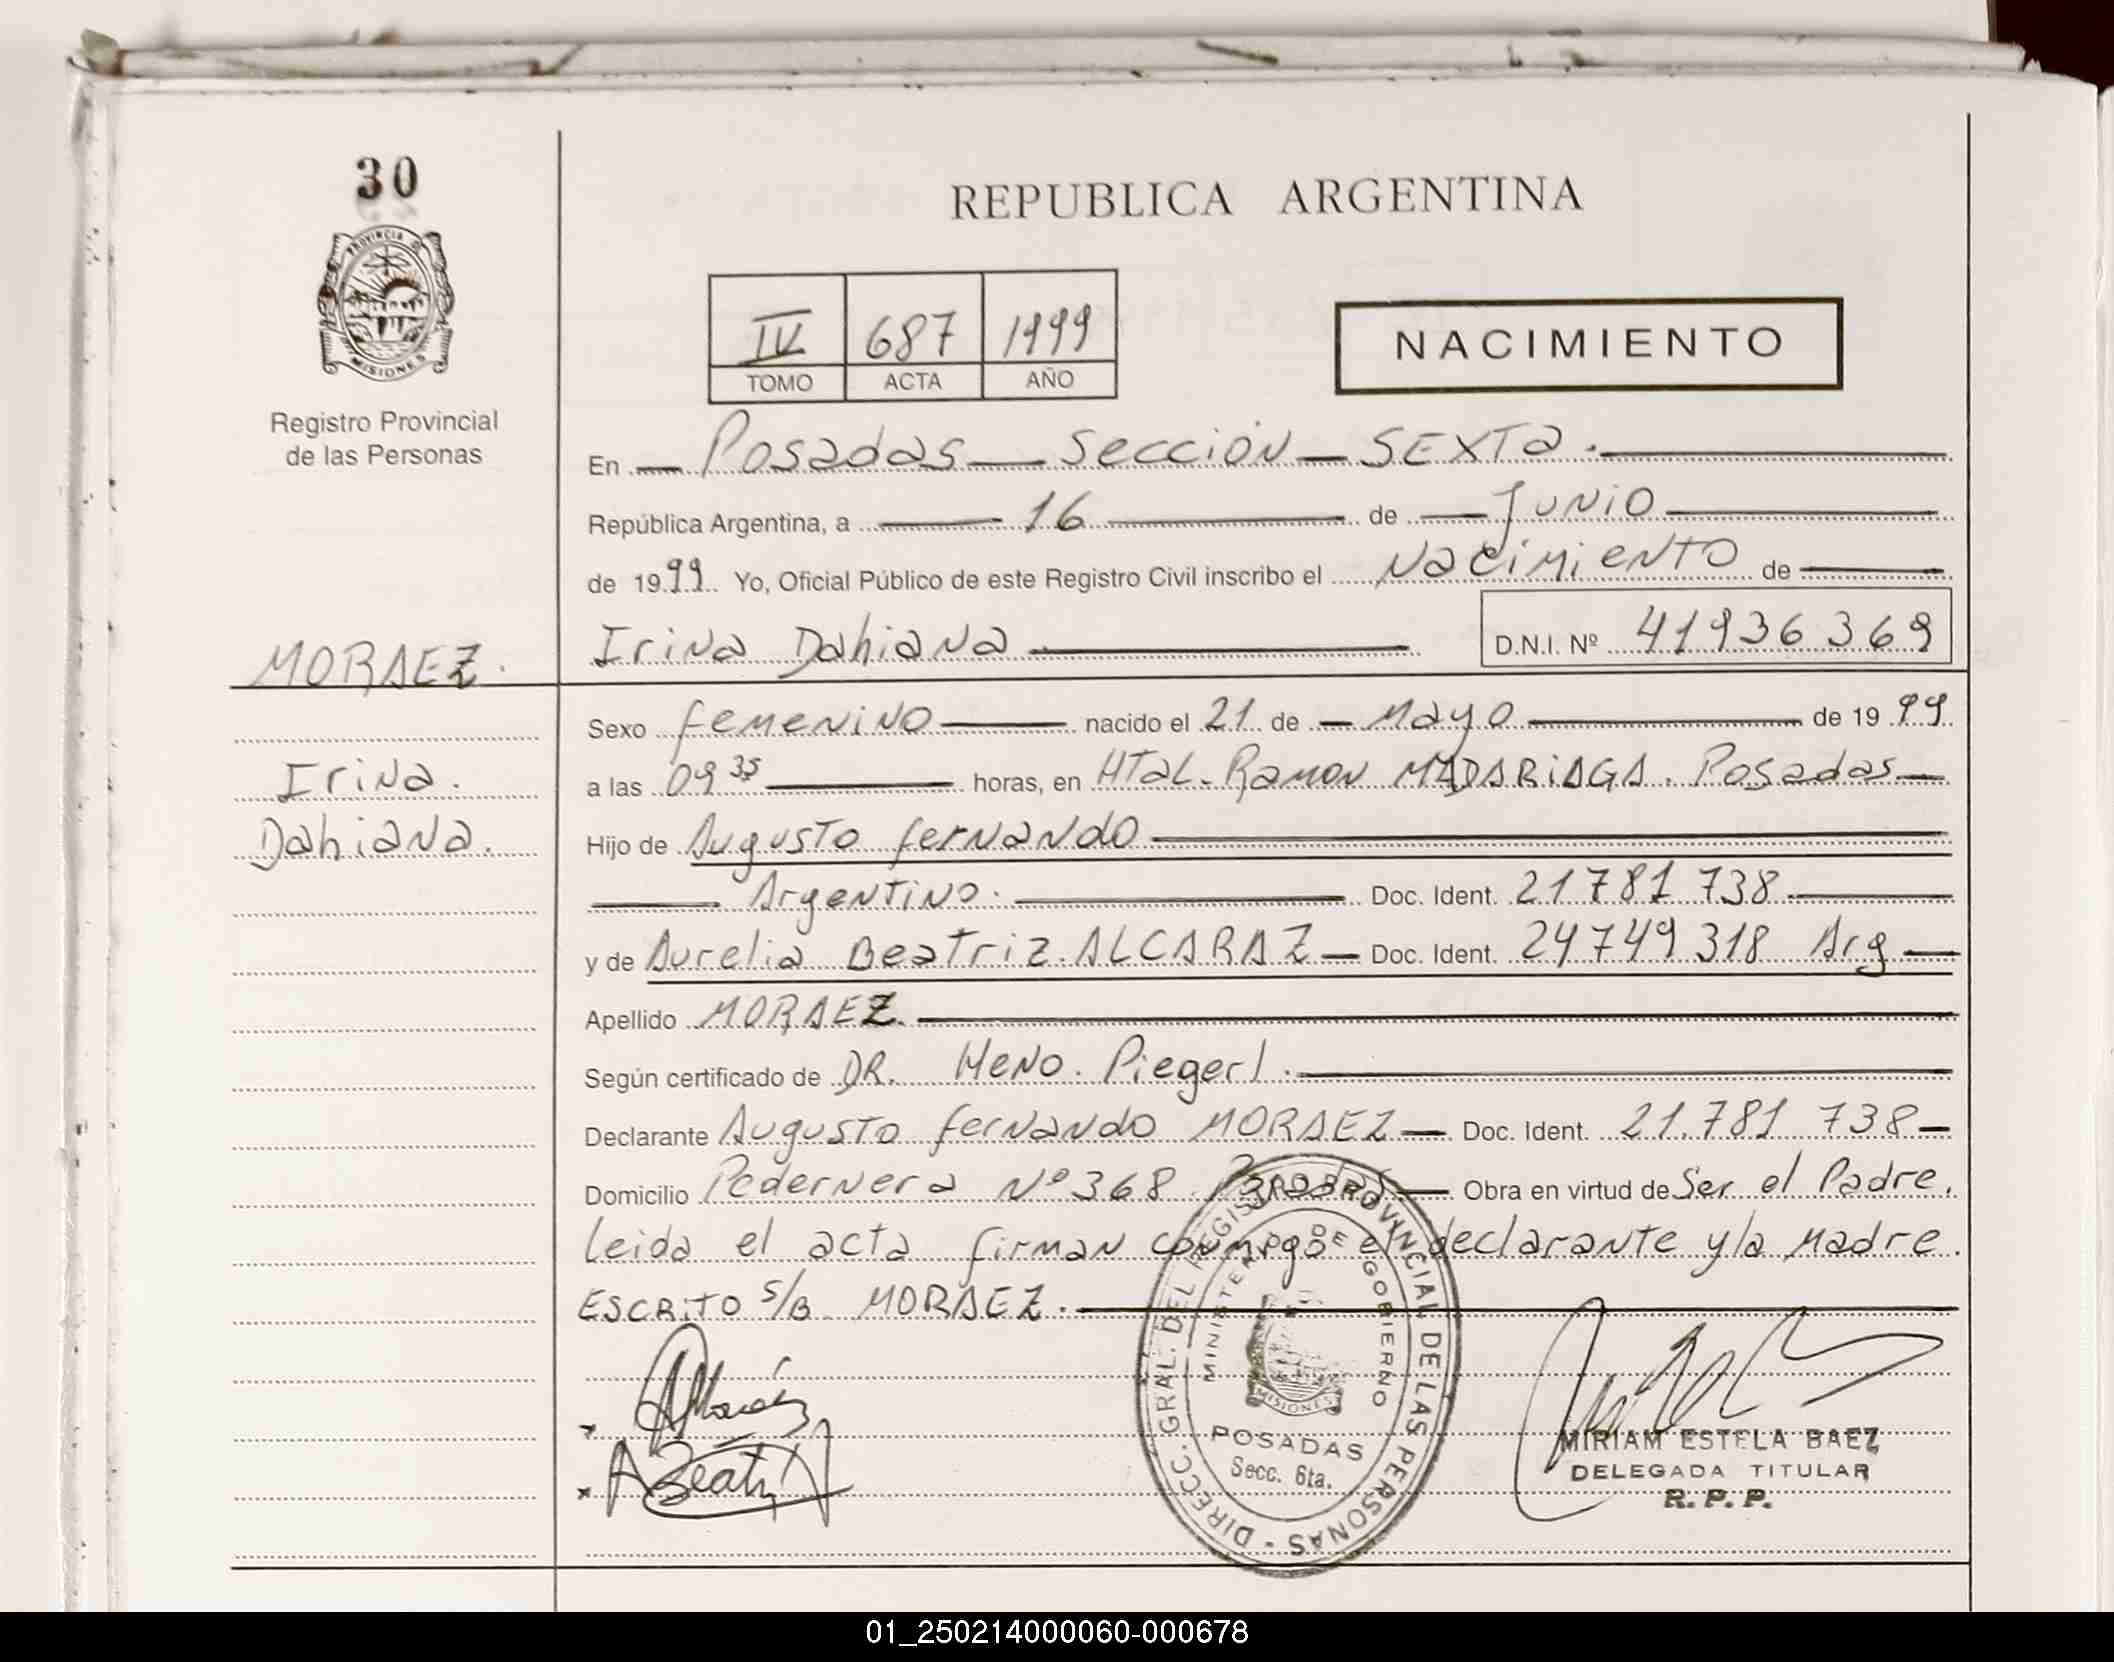 30
PROVINCIA D
MISIONES
Registro Provincial
de las Personas
REPUBLICA ARGENTINA
IV 687 1999
TOMO ACTA AÑO
NACIMIENTO
En Posadas Sección SEXTA.
República Argentina, a 16 de Junio
de 1999 Yo, Oficial Público de este Registro Civil inscribo el Nacimiento de
Irina Dahiana D.N.I. Nº 41936369
MORAEZ.
Irina.
Dahiana.
Sexo femenino nacido el 21 de Mayo de 1999
a las 09 35 horas, en HTal. Ramon MADARIAGA. Posadas
Hijo de Augusto fernando
Argentino. Doc. Ident. 21 781 738
y de Aurelia Beatriz ALCARAZ Doc. Ident. 24 749 318 Arg
Apellido MORAEZ.
Según certificado de DR. Heno. Piegerl.
Declarante Augusto fernando MORAEZ Doc. Ident. 21.781 738
Domicilio Pedernera Nº 368 Posadas Obra en virtud de Ser el Padre.
Leida el acta firman conmigo el declarante y la Madre.
ESCRITO S/B MORAEZ.
DIRECC. GRAL. DEL REGISTRO PROVINCIAL DE LAS PERSONAS
MINISTERIO DE GOBIERNO
MISIONES
POSADAS
Secc. 6ta.
MIRIAM ESTELA BAEZ
DELEGADA TITULAR
R. P. P.
01_250214000060-000678